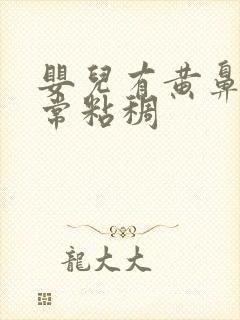 嬰兒有黃鼻
常粘稠
龍大大